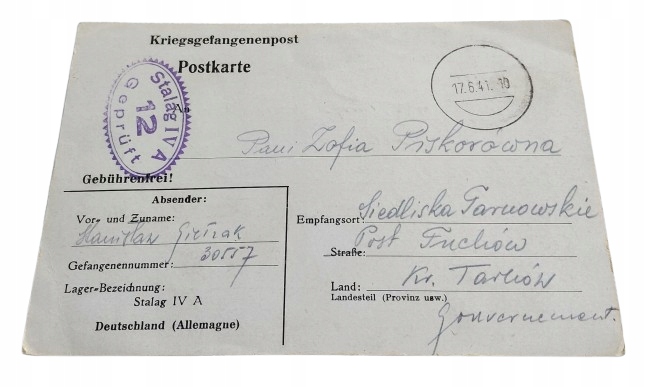 Kriegsgefangenenpost
Postkarte
17.6.41. 10
Stalag IV A
12
Geprüft
An
Pani Zofia Piskorówna
Gebührenfrei!
Absender:
Vor- und Zuname:
Stanislav
Gefangenennummer: 30557
Lager-Bezeichnung:
Stalag IV A
Deutschland (Allemagne)
Empfangsort: Siedliska Tarnowskie
Straße: Post Tuchów
Land: Kr. Tarnów
Landesteil (Provinz usw.)
Gouvernement.